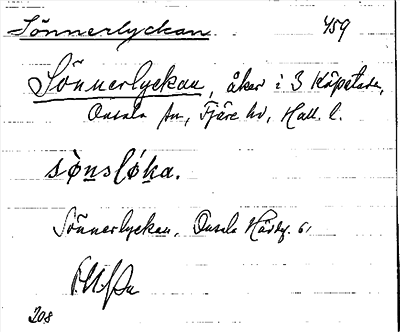 Sönnerlyckan. 459
Sönnerlyckan, åker i 3 Köpstad,
Onsala sn, Fjäre hd, Hall. l.
sønsløka.
Sönnerlyckan, Onsala Hdsbg. 61
208